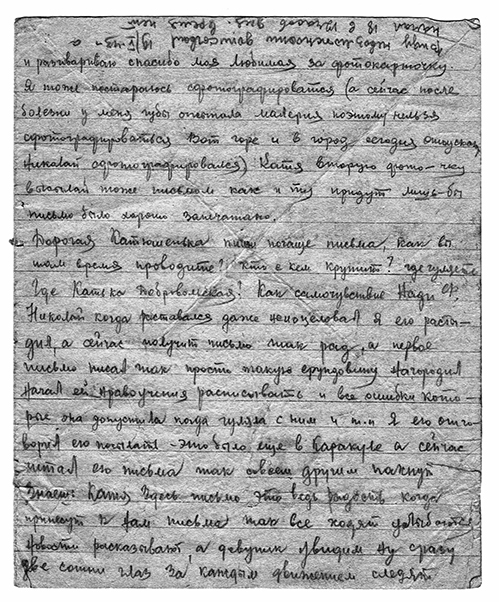 и разговариваю спасибо моя любимая за фотокарточку.
Я тоже постараюсь сфотографироваться (а сейчас после
болезни у меня губы опетала малерия поэтому нельзя
сфотографироваться Вот горе и в город сегодня
Николай сфотографировался) Катя вторую фото-чку
высылай тоже письмом как и эту придут лишь-бы
письмо было хорошо запечатано.
Дорогая Катюшенька пиши почаще письма, как вы
там время проводите? Кто с кем крутит? где гуляете
Где Катька Добровольская! Как самочувствие Нади
Николай когда расставался даже непоцеловал я его расты-
дил, а сейчас получит письмо так рад, а первое
письмо писал так просто такую ерундовину нагородил
начал ей нравоучения расписывать и все ошибки кото-
рые она допустила когда гуляла с ним и т.п Я его отго-
ворил его посылать - это было еще в Каракуле а сейчас
читал его письма так совсем другим пахнут
Знаешь Катя здесь письмо это ведь радость когда
принесут к нам письма так все ходят улыбаются
новости рассказывают, а девушек увидим ну сразу
две сотни глаз за каждым движением следят